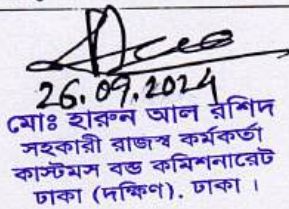 26.09.2024
মোঃ হারুন আল রশিদ
সহকারী রাজস্ব কর্মকর্তা
কাস্টমস বন্ড কমিশনারেট
ঢাকা (দক্ষিণ), ঢাকা।